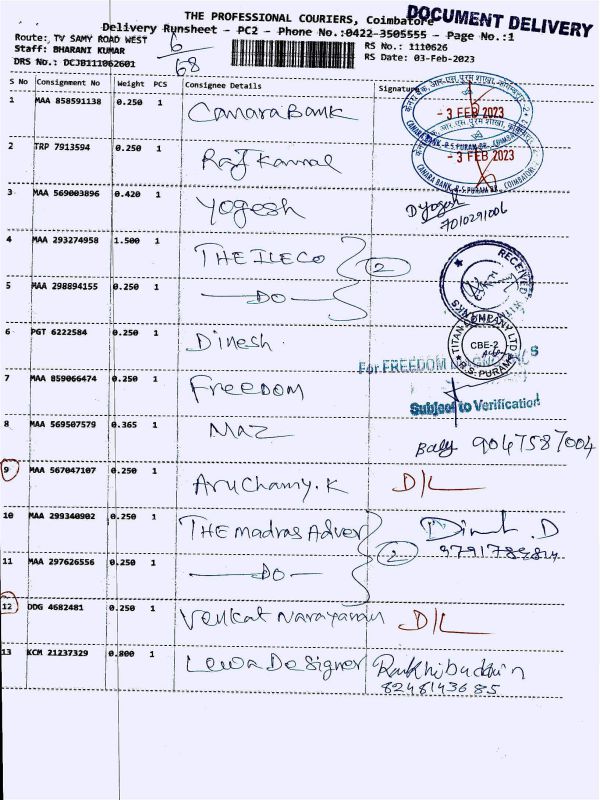 THE PROFESSIONAL COURIERS, Coimbatore
DOCUMENT DELIVERY
Delivery Runsheet - PC2 - Phone No.:0422-3505555 - Page No.:1
Route: TV SAMY ROAD WEST
6/68
RS No.: 1110626
Staff: BHARANI KUMAR
RS Date: 03-Feb-2023
DRS No.: DCJB111062601
S No Consignment No Weight PCS Consignee Details Signature
1 MAA 858591138 0.250 1 Canara Bank
- 3 FEB 2023
2 TRP 7913594 0.250 1 Raj Kamal
- 3 FEB 2023
CANARA BANK, R.S. PURAM BR., COIMBATORE
3 MAA 569003896 0.420 1 Yogesh D Yogesh
7010291006
4 MAA 293274958 1.500 1 THE ILECO 2
RECEIVED
5 MAA 298894155 0.250 1 —DO—
TITAN COMPANY LTD
CBE-2
R.S. PURAM
6 PGT 6222584 0.250 1 Dinesh.
For FREEDOM
7 MAA 859066474 0.250 1 Freedom
Subject to Verification
8 MAA 569507579 0.365 1 MAZ
9047587004
9 MAA 567047107 0.250 1 Aruchamy.K D/L
10 MAA 299340902 0.250 1 THE Madras Adver 2
11 MAA 297626556 0.250 1 —DO—
12 ODG 4682481 0.250 1 Venkat Narayanan D/L
13 KCM 21237329 0.800 1 Lewa Designer
8248143685